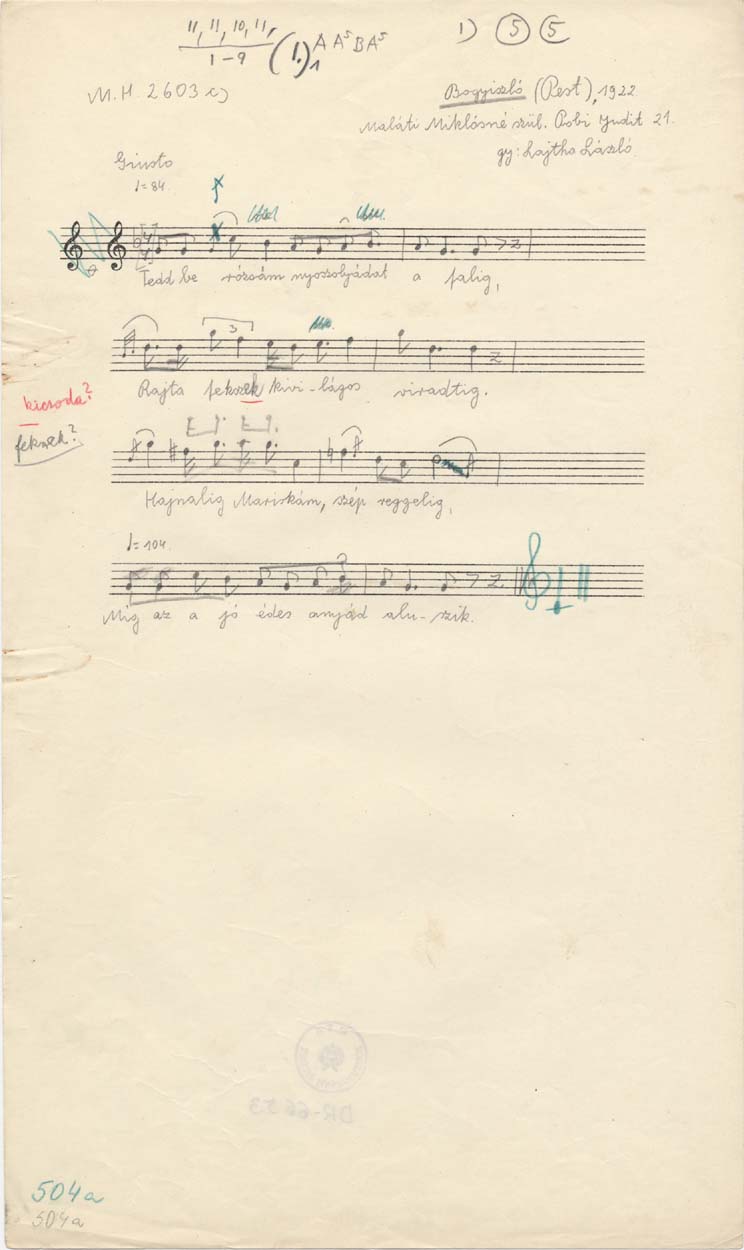 11, 11, 10, 11,
1-9
(1.)1 A A5 B A5
1) 5 5
M.H. 2603 c)
Bogyiszló (Pest), 1922
Maláti Miklósné szül. Pobi Judit 21.
gy: Lajtha László
Giusto
♩= 84.
Tedd be rózsám nyoszolyádat a falig,
3
Rajta fekszek kivi-lágos viradtig.
kicsoda?
fekszek?
Hajnalig Mariskám, szép reggelig,
♩= 104.
Míg az a jó édes anyád alu-szik.
DR-6653
504a
504a